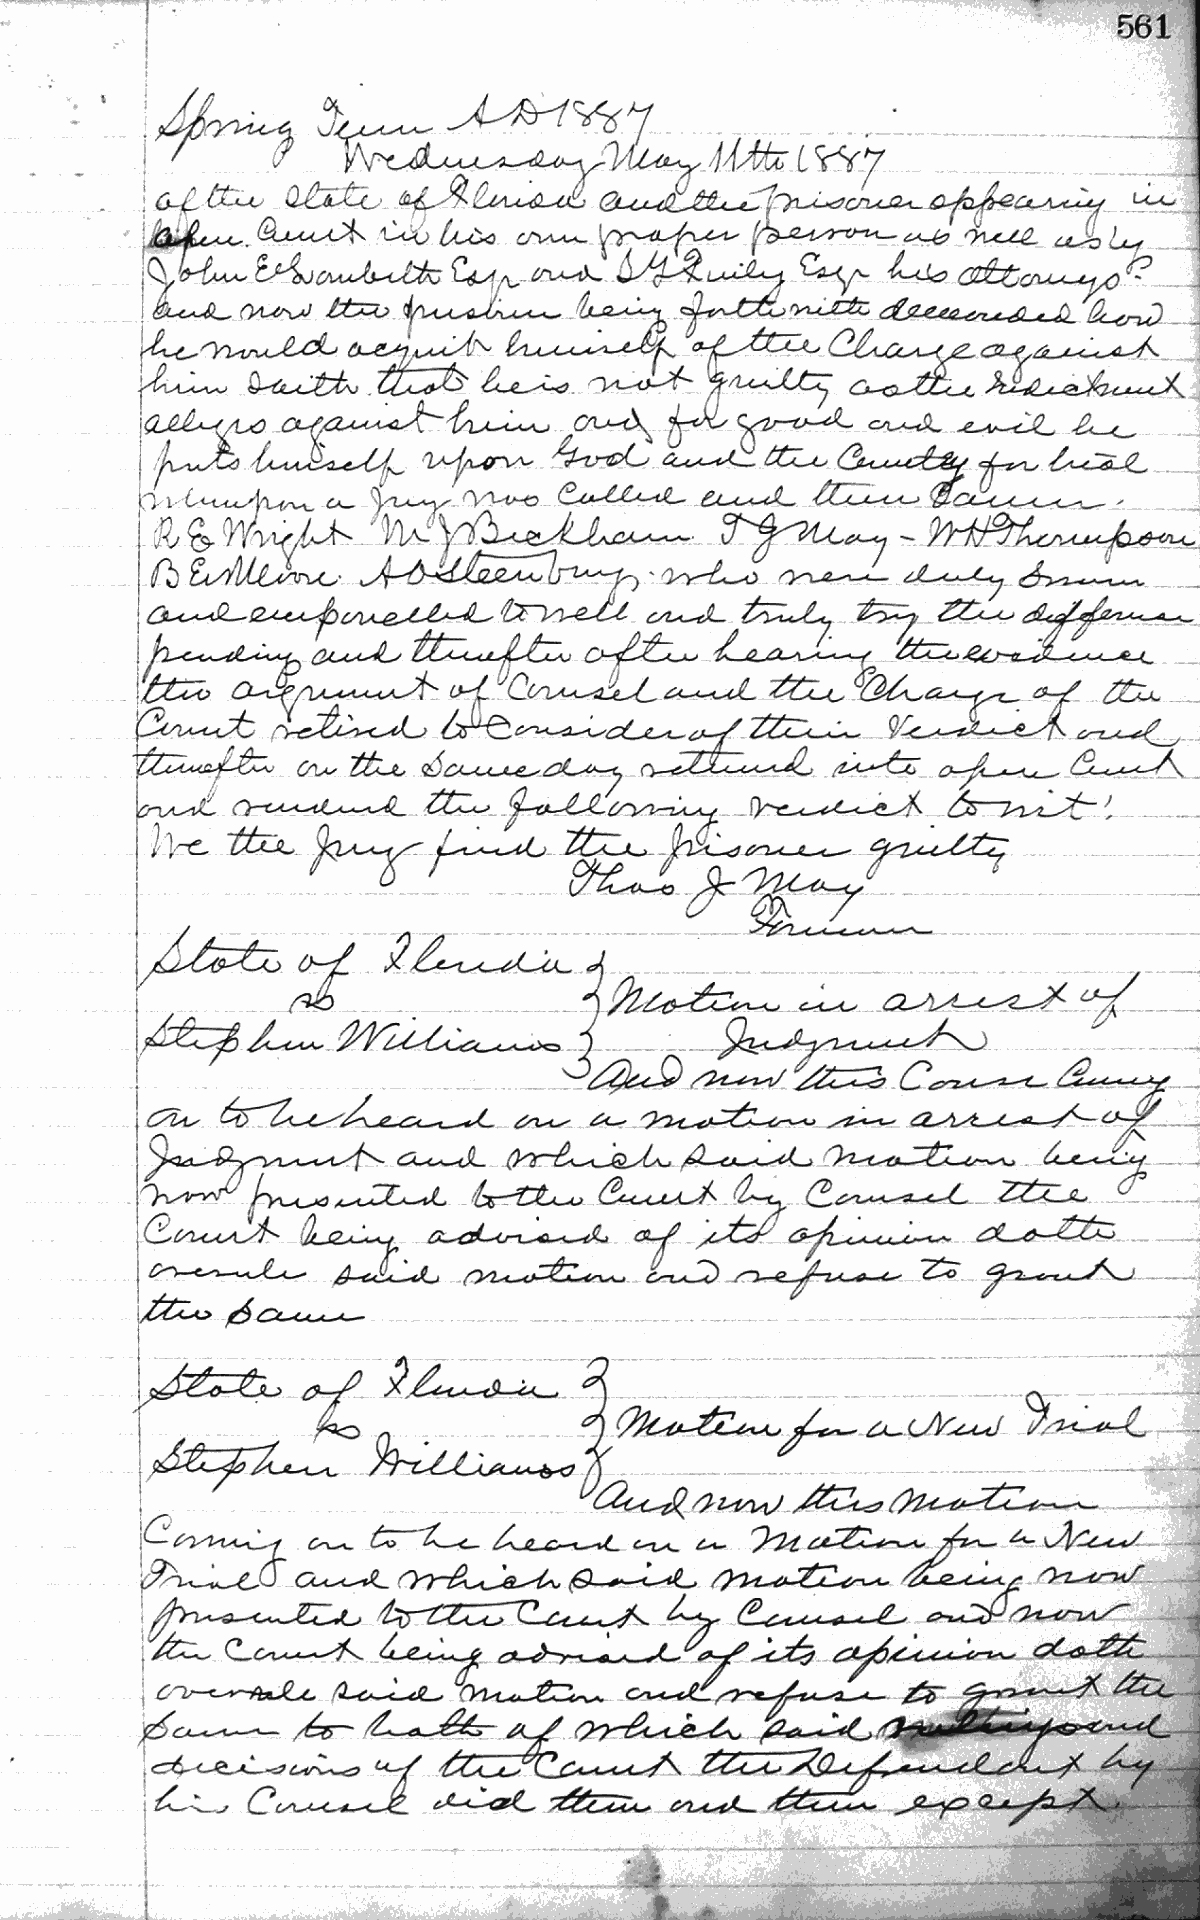 561
Spring Term A D 1887
Wednesday May 11th 1887
of the State of Florida and the prisoner appearing in
open Court in his own proper person as well as by
John E Esqr and S G Esqr his attorneys
and now the prisoner being forthwith demanded how
he would acquit himself of the Charge against
him saith that he is not guilty as the Indictment
alleges against him and for good and evil he
puts himself upon God and the Country for trial
whereupon a Jury was Called and then Came
R E Wright M J Beckham T J May - W H Thompson
B E Moore A O Steenburg who were duly sworn
and empanelled to well and truly try the difference
pending and thereafter after hearing the evidence
the argument of Counsel and the Charge of the
Court retired to Consider of their Verdict and
thereafter on the same day returned into open Court
and rendered the following verdict to wit!
We the Jury find the prisoner guilty
Thos J May
Foreman
State of Florida
vs
Motion in arrest of
Stephen Williams
Judgment
And now this Cause Coming
on to be heard on a motion in arrest of
Judgment and which said motion being
now presented to the Court by Counsel the
Court being advised of its opinion doth
overrule said motion and refuse to grant
the same
State of Florida
vs
Motion for a New Trial
Stephen Williams
And now this motion
Coming on to be heard on a Motion for a New
Trial and which said motion being now
presented to the Court by Counsel and now
the Court being advised of its opinion doth
overrule said motion and refuse to grant the
same to both of which said rulings and
decisions of the Court the Defendant by
his Counsel did then and there except.